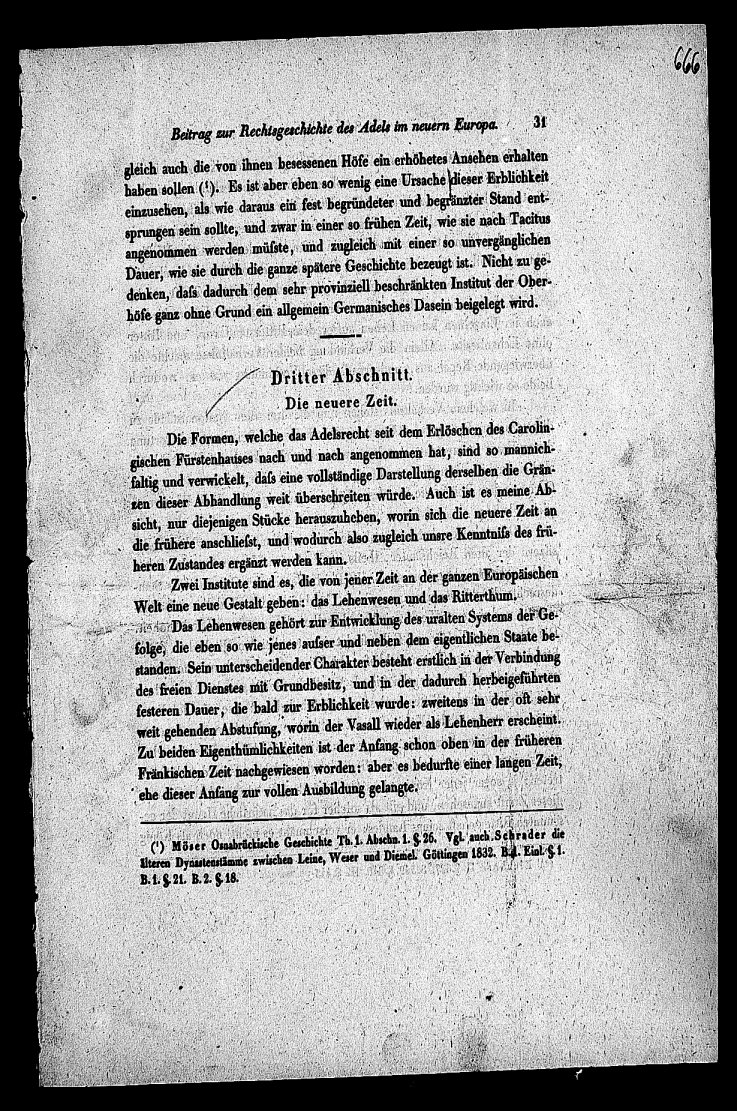 666
Beitrag zur Rechtsgeschichte des Adels im neuern Europa. 31
gleich auch die von ihnen besessenen Höfe ein erhöhetes Ansehen erhalten
haben sollen (¹). Es ist aber eben so wenig eine Ursache dieser Erblichkeit
einzusehen, als wie daraus ein fest begründeter und begränzter Stand ent-
sprungen sein sollte, und zwar in einer so frühen Zeit, wie sie nach Tacitus
angenommen werden müſste, und zugleich mit einer so unvergänglichen
Dauer, wie sie durch die ganze spätere Geschichte bezeugt ist. Nicht zu ge-
denken, daſs dadurch dem sehr provinziell beschränkten Institut der Ober-
höfe ganz ohne Grund ein allgemein Germanisches Dasein beigelegt wird.
Dritter Abschnitt.
Die neuere Zeit.
Die Formen, welche das Adelsrecht seit dem Erlöschen des Carolin-
gischen Fürstenhauses nach und nach angenommen hat, sind so mannich-
faltig und verwickelt, daſs eine vollständige Darstellung derselben die Grän-
zen dieser Abhandlung weit überschreiten würde. Auch ist es meine Ab-
sicht, nur diejenigen Stücke herauszuheben, worin sich die neuere Zeit an
die frühere anschlieſst, und wodurch also zugleich unsre Kenntniſs des frü-
heren Zustandes ergänzt werden kann.
Zwei Institute sind es, die von jener Zeit an der ganzen Europäischen
Welt eine neue Gestalt geben: das Lehenwesen und das Ritterthum.
Das Lehenwesen gehört zur Entwicklung des uralten Systems der Ge-
folge, die eben so wie jenes auſser und neben dem eigentlichen Staate be-
standen. Sein unterscheidender Charakter besteht erstlich in der Verbindung
des freien Dienstes mit Grundbesitz, und in der dadurch herbeigeführten
festeren Dauer, die bald zur Erblichkeit wurde: zweitens in der oft sehr
weit gehenden Abstufung, worin der Vasall wieder als Lehenherr erscheint.
Zu beiden Eigenthümlichkeiten ist der Anfang schon oben in der früheren
Fränkischen Zeit nachgewiesen worden: aber es bedurfte einer langen Zeit,
ehe dieser Anfang zur vollen Ausbildung gelangte.
(¹) Möser Osnabrückische Geschichte Th. 1. Abschn. 1. §. 26. Vgl. auch Schrader die
älteren Dynastenstämme zwischen Leine, Weser und Diemel. Göttingen 1832. B. 1. Einl. §. 1.
B. 1. §. 21. B. 2. §. 18.